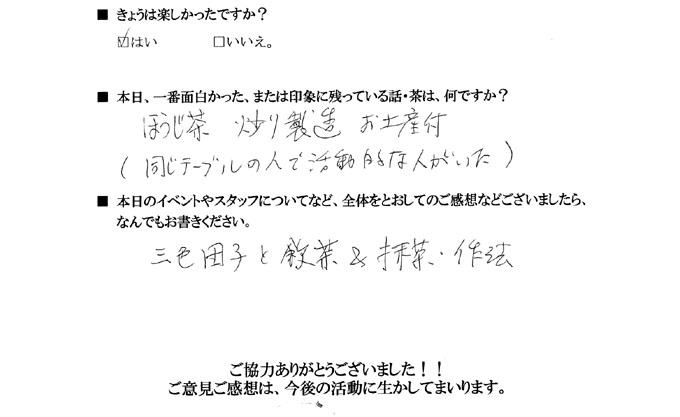 ■ きょうは楽しかったですか？
☑はい □いいえ。
■ 本日、一番面白かった、または印象に残っている話・茶は、何ですか？
ほうじ茶 炒り製造 お土産付
（同じテーブルの人で活動的な人がいた）
■ 本日のイベントやスタッフについてなど、全体をとおしてのご感想などございましたら、
なんでもお書きください。
三色団子と煎茶＆抹茶・作法
ご協力ありがとうございました！！
ご意見ご感想は、今後の活動に生かしてまいります。